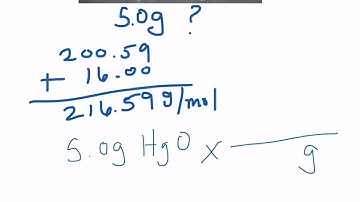 5.0g ?
200.59
+ 16.00
216.59 g/mol
5.0g HgO x
g